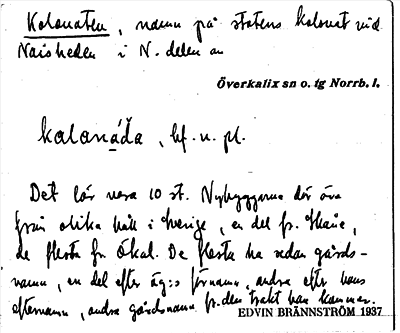 Kolonaten, namn på statens kolonat vid
Naisheden i N. delen av
Överkalix sn o. tg Norrb. l.
kalanáða, bf. n. pl.
Det lär vara 10 st. Nybyggarna där äro
från olika håll i Sverige, en del fr. Skåne,
de flesta fr. Ökal. De flesta ha sedan gårds-
namn, en del efter äg:s förnamn, andra efter hans
efternamn, andra gårdsnamn fr. den trakt han kommer.
EDVIN BRÄNNSTRÖM 1937